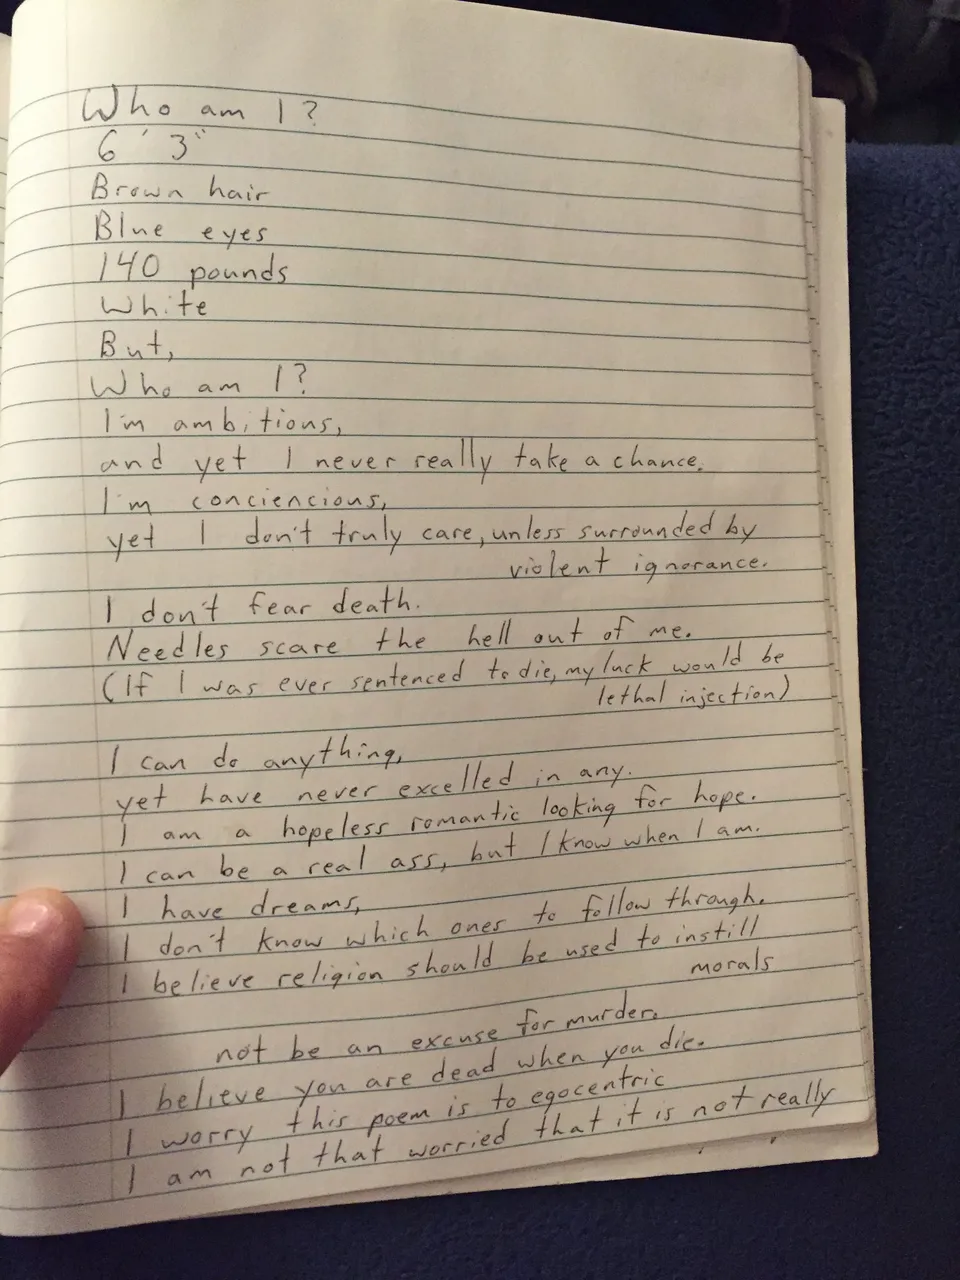 Who am I?
6' 3"
Brown hair
Blue eyes
140 pounds
White
But,
Who am I?
I'm ambitious,
and yet I never really take a chance.
I'm conciencious,
yet I don't truly care, unless surrounded by
violent ignorance.
I don't fear death.
Needles scare the hell out of me.
(If I was ever sentenced to die, my luck would be
lethal injection)
I can do anything,
yet have never excelled in any.
I am a hopeless romantic looking for hope.
I can be a real ass, but I know when I am.
I have dreams,
I don't know which ones to follow through.
I believe religion should be used to instill
morals
not be an excuse for murder.
I believe you are dead when you die.
I worry this poem is to egocentric
I am not that worried that it is not really